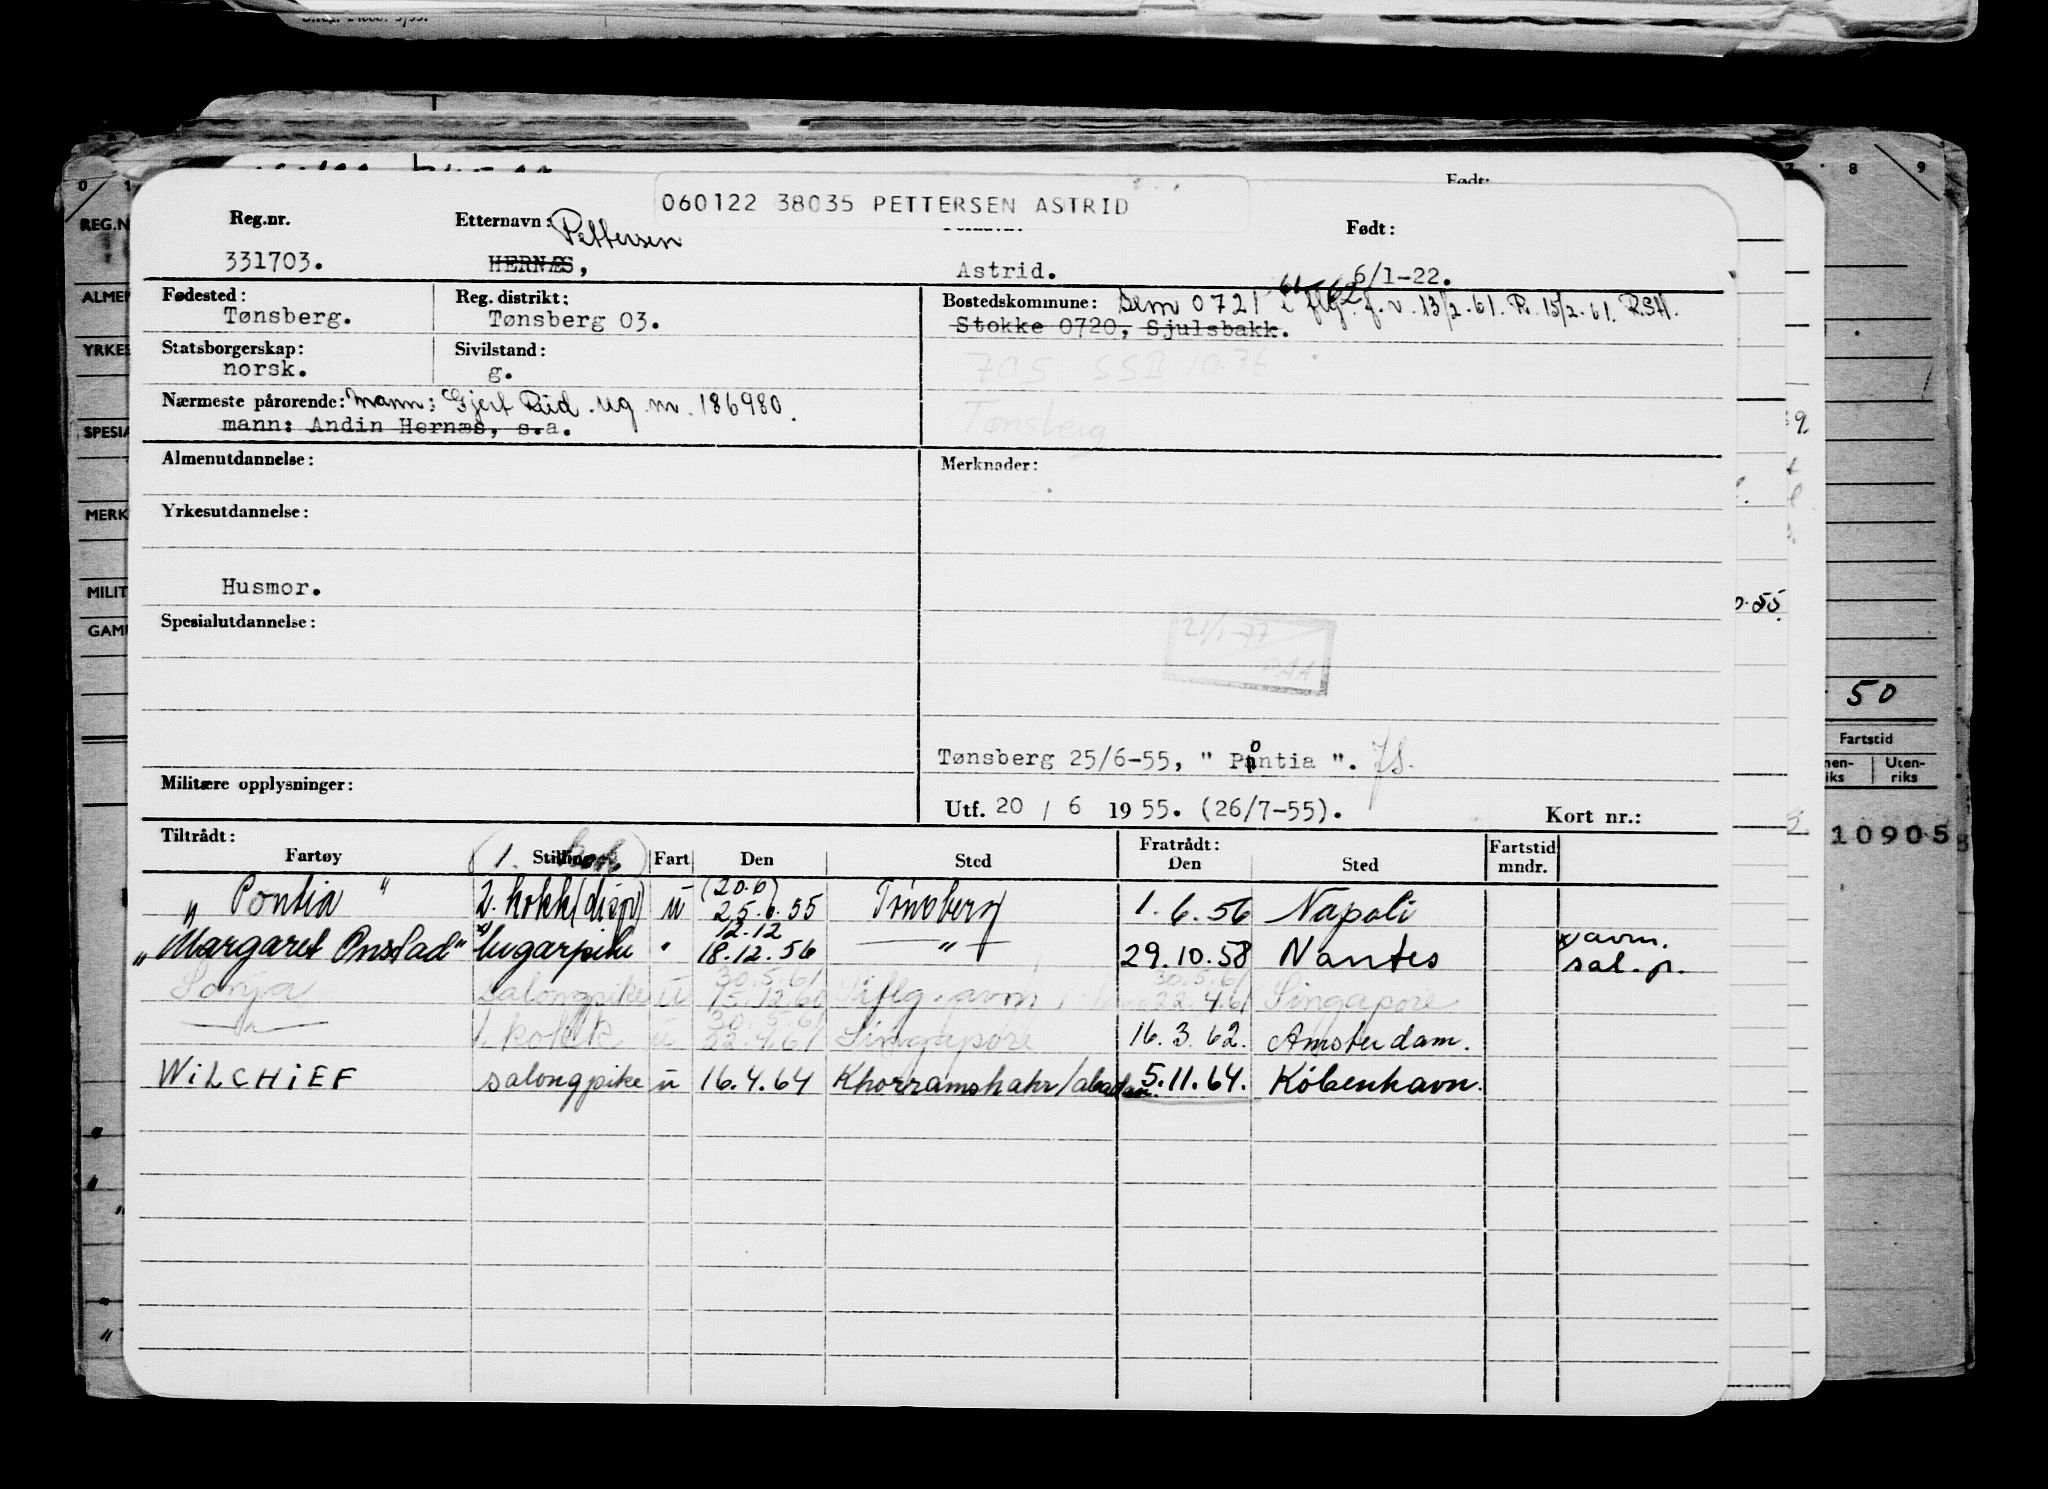 060122 38035 PETTERSEN ASTRID
Født:
Reg.nr. Etternavn: Pettersen Født:
331703. HERNÆS, Astrid. 6/1-22.
Fødested: Reg. distrikt: Bostedskommune: Sem 0721 i flg. f.v. 13/2-61. R. 15/2-61. RSH.
61-62
Tønsberg. Tønsberg 03. Stokke 0720, Sjulsbakk.
Statsborgerskap: Sivilstand:
norsk. g. 705 SSB 10.76
Nærmeste pårørende: Mann: Gjert Rüd. ug. nr. 186980.
mann: Andin Hernæs, s.a. Tønsberg
Almenutdannelse: Merknader:
Yrkesutdannelse:
Husmor.
Spesialutdannelse:
21/1-77
Tønsberg 25/6-55, " Pontia ".
Militære opplysninger:
Utf. 20 / 6 1955. (26/7-55). Kort nr.:
Tiltrådt: Fratrådt: Fartstid
Fartøy Stilling Fart Den Sted Den Sted mndr.
(1. kok)
(20.6)
" Pontia " 2. kokk (disp) u 25.6.55 Tønsberg 1.6.56 Napoli
12.12
"Margaret Onstad" x) lugarpike " 18.12.56 " 29.10.58 Nantes x) avm. sal.p.
30.5.61 30.5.61
Sonja salongpike u 15.12.60 i flg. avm 22.4.61 Singapore
30.5.61
" 1. kokk u 22.4.61 Singapore 16.3.62. Amsterdam.
WILCHIEF salongpike u 16.4.64 Khorramshahr/abadan. 5.11.64. København.
0 1
REG.N
ALMEN
YRKES
SPESIA
MERK
MILIT
GAMM
8 9
50
Fartstid
Uten-
riks
10905